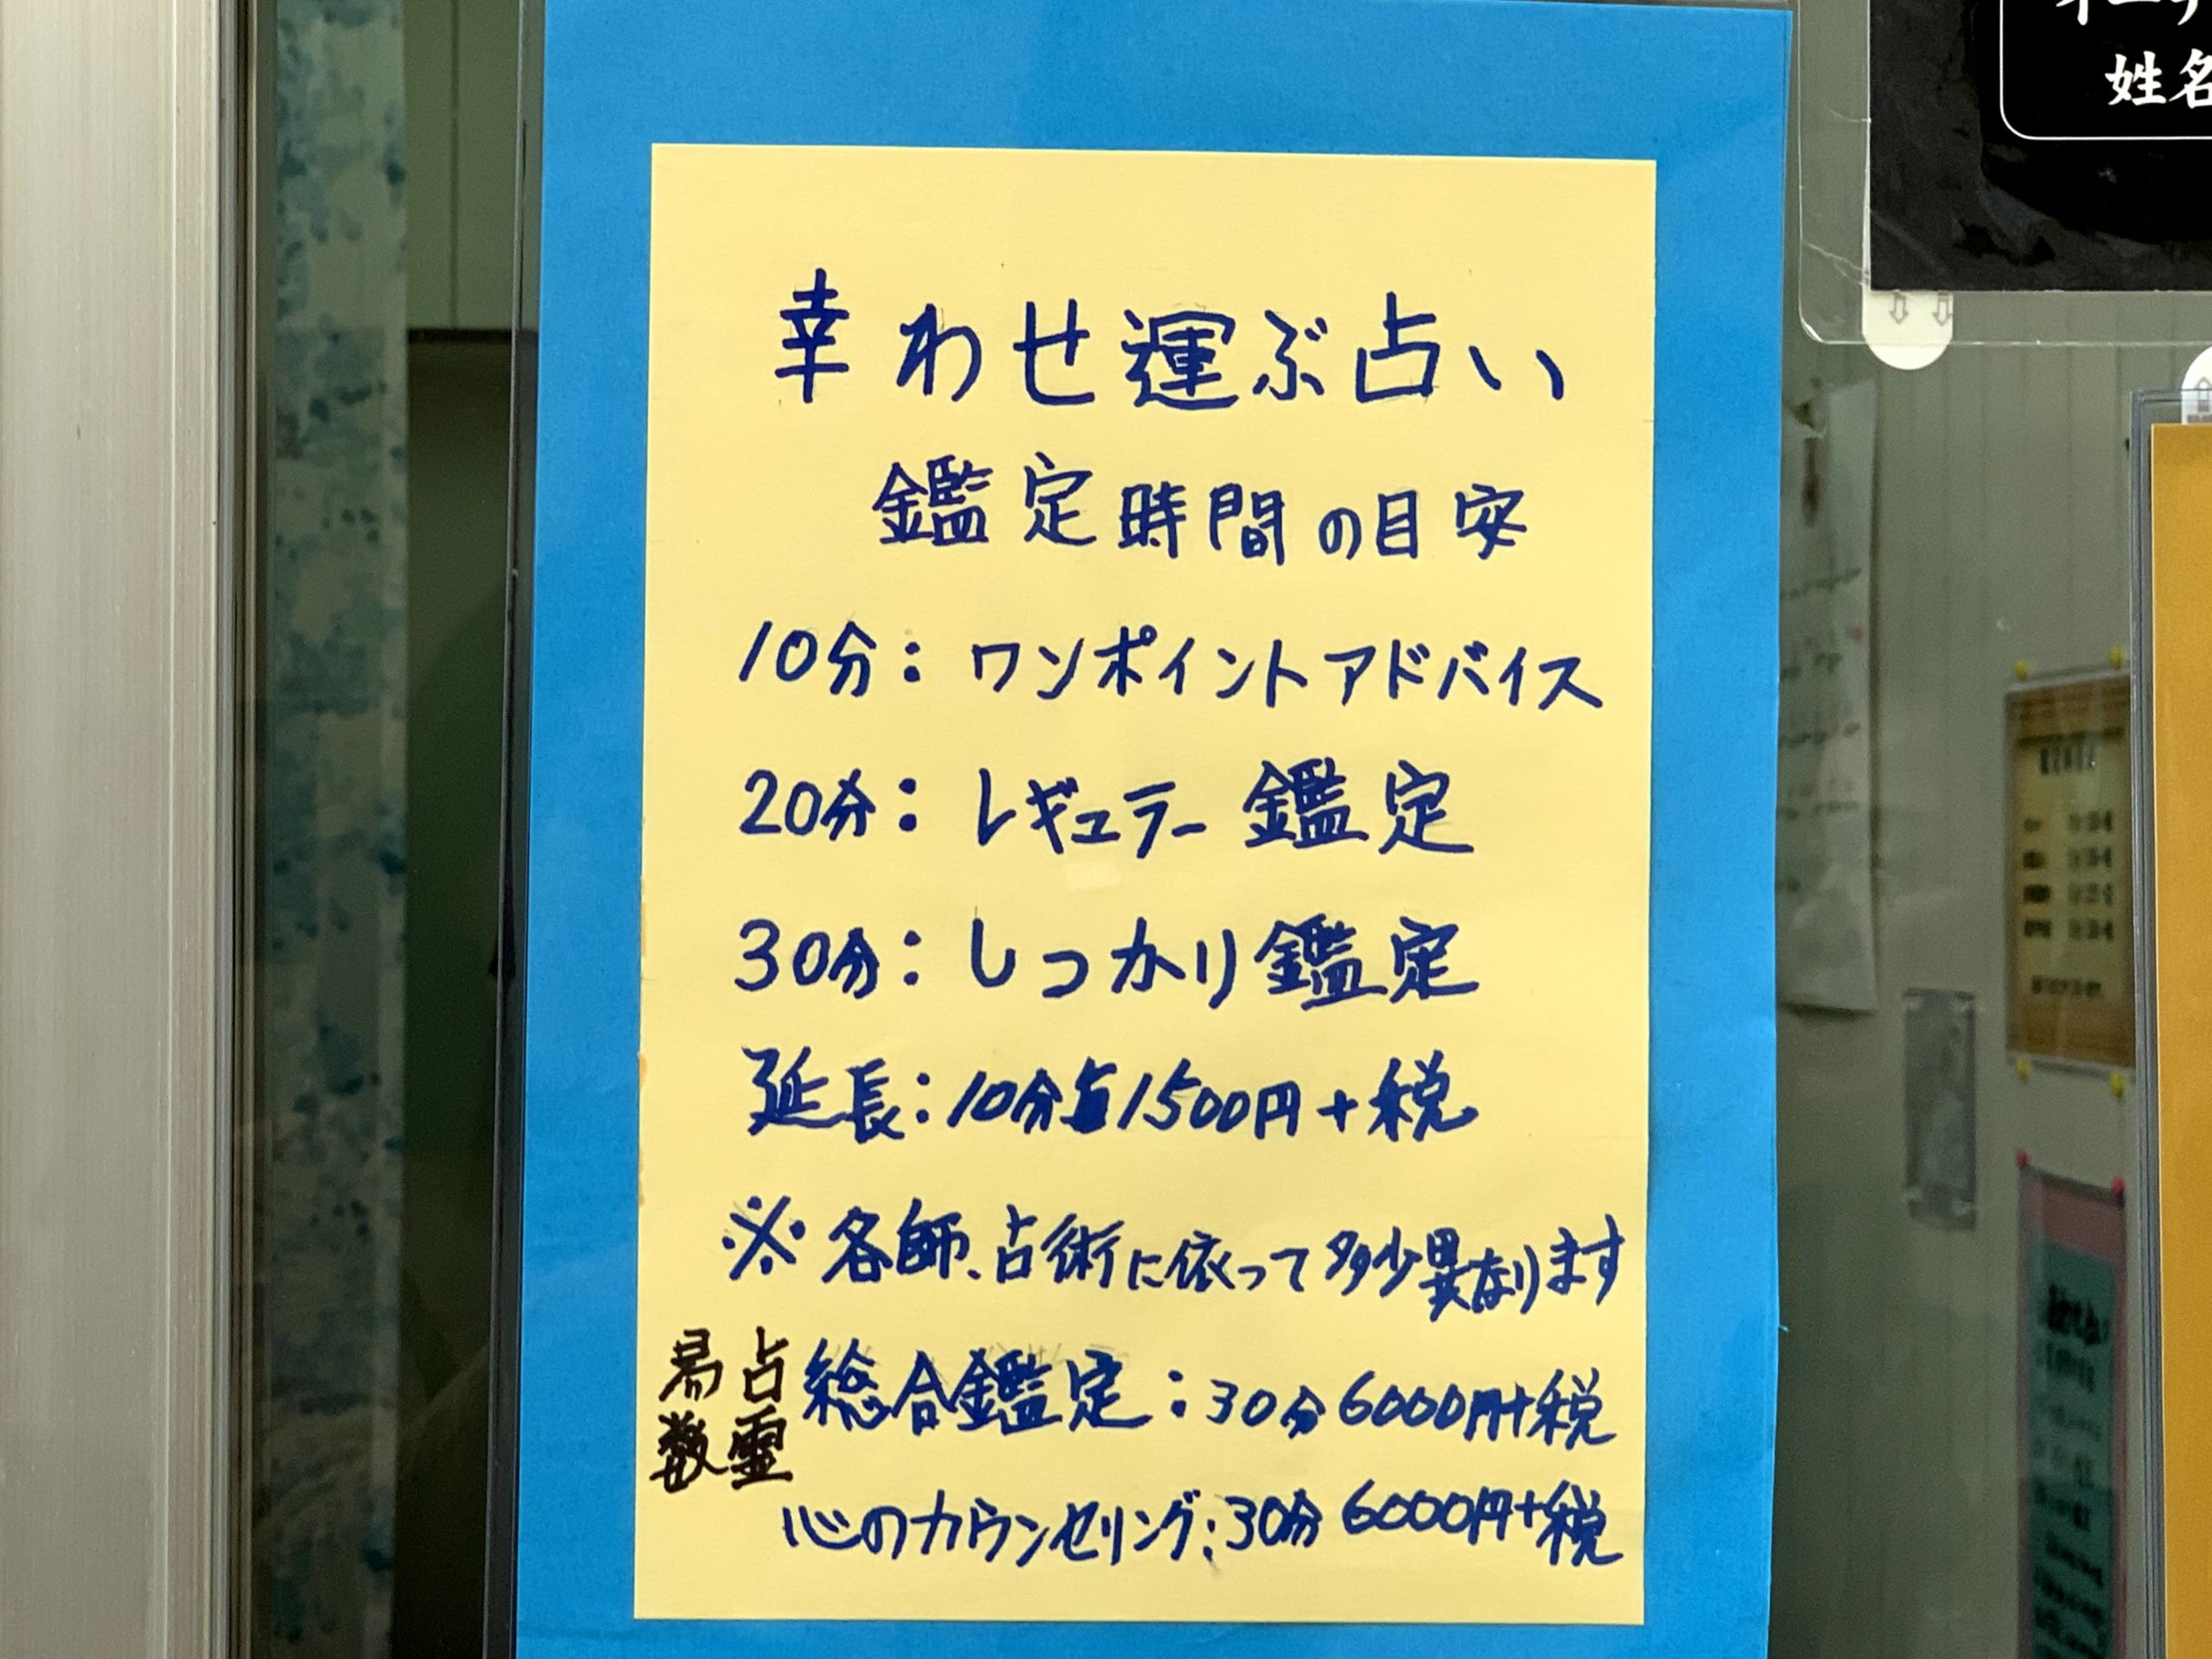 幸わせ運ぶ占い
鑑定時間の目安
10分:ワンポイントアドバイス
20分:レギュラー鑑定
30分:しっかり鑑定
延長:10分 1500円+税
※各師、占術に依って多少異なります
易占
数霊
総合鑑定:30分6000円+税
心のカウンセリング:30分6000円+税
姓名